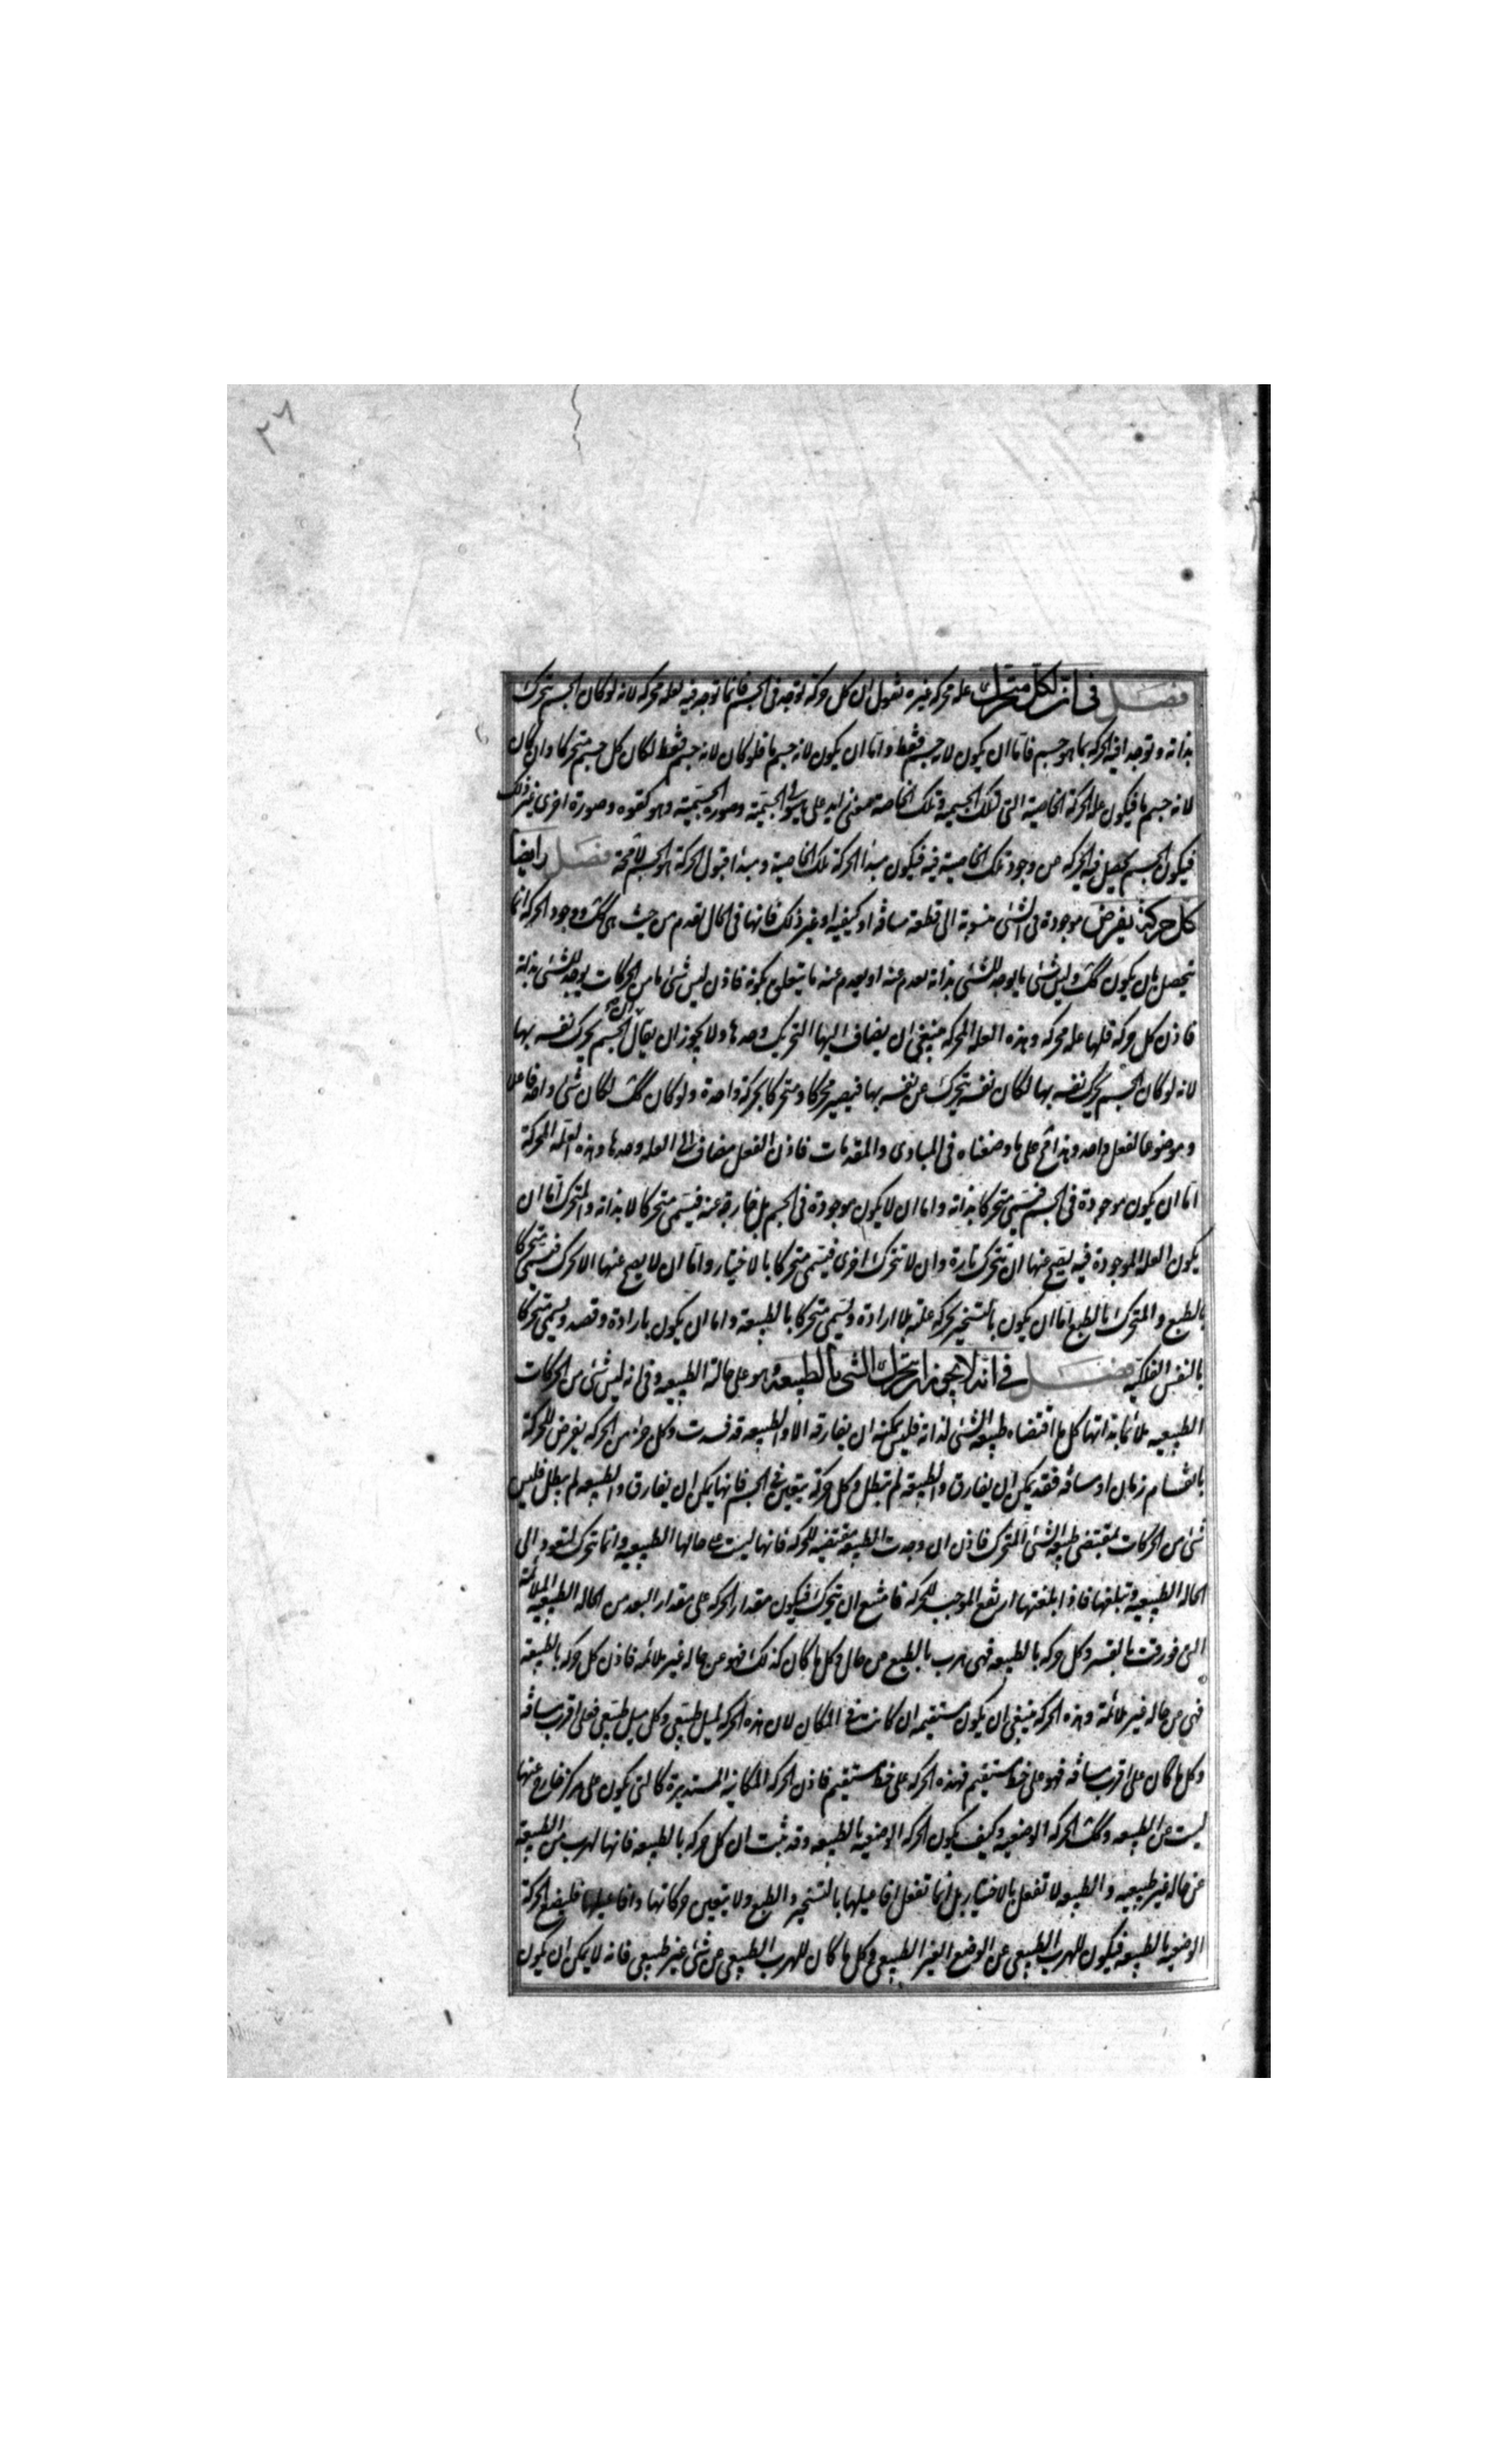 ٢٨
فصل في ان لكل متحرك علة محركة غيره نقول ان كل حركة توجد في الجسم فانما توجد فيه لعلة محركة لانه لو كان الجسم يتحرك
بذاته وتوجد فيه الحركة بما هو جسم فاما ان يكون لانه جسم فقط واما ان يكون لانه جسم ما فلو كان لانه جسم فقط لكان كل جسم متحركا وان كان
لانه جسم ما فيكون علة الحركة الخاصية التي لتلك الجسمية وتلك الخاصة معنى زايد على هيولى الجسمية وصورة الجسمية وهو كقوة وصورة اخرى غير ذلك
فيكون الجسم يحصل فيه الحركة من وجود تلك الخاصية فيه فيكون مبدأ الحركة تلك الخاصية ومبدأ قبول الحركة هو الجسم لا محة فصل وايضا
كل حركة يفرض موجودة في الشئ منسوبة الى قطعة مسافة او كيفية او غير ذلك فانها في الحال تعدم من حيث هي كك ووجود الحركة انما
يحصل بان يكون كك وليس شئ ما يوجد للشئ بذاته يعدم عنه او يعدم عنه ما يتعلق بكونه فاذن ليس شئ ما من الحركات يوجد للشئ بذاته
فاذن كل حركة فلها علة محركة وهذه العلة المحركة ينبغي ان يضاف اليها التحريك وحدها ولا يجوز ان يقال ان الجسم يحرك نفسه بها
لانه لو كان الجسم يحرك نفسه بها لكان نفسه يتحرك عن نفسه بها فيصير محركا ومتحركا بحركة واحدة ولو كان كك لكان شئ واحد فاعلا
وموضوعا لفعل واحد وهذا مح على ما وضعناه في المبادى والمقدمات فاذن الفعل مضاف الى العلة وحدها وهذه العلة المحركة
اما ان يكون موجودة في الجسم فيسمى متحركا بذاته واما ان لا يكون موجودة في الجسم بل خارجة عنه فيسمى متحركا لا بذاته والمتحرك اما ان
يكون العلة الموجودة فيه يصح عنها ان تتحرك تارة وان لا تتحرك اخرى فيسمى متحركا بالاختيار واما ان لا يصح عنها الا تحرك فيسمى متحركا
بالطبع والمتحرك بالطبع اما ان يكون بالتسخير يحركه علته بلا ارادة ويسمى متحركا بالطبيعة واما ان يكون بارادة وقصد ويسمى متحركا
بالنفس الفلكية فصل في انه لا يجوز ان يتحرك الشئ بالطبيعة وهو على حالة الطبيعية وفي انه ليس شئ من الحركات
الطبيعية ملائما بذاتها كل ما اقتضاه طبيعة الشئ لذاته فليس يمكنه ان يفارقه الا والطبيعة قد فسدت وكل جزء من الحركة يفرض للحركة
بانقسام زمان او مسافة فقد يمكن ان يفارق والطبيعة لم تبطل وكل حركة يتعين في الجسم فانها يمكن ان يفارق والطبيعة لم يبطل فليس
شئ من الحركات بمقتضى طبيعة الشئ المتحرك فاذن ان وجدت الطبيعة مقتضية للحركة فانها ليست على حالها الطبيعية وانما تحرك لتعود الى
الحالة الطبيعية وتبلغها فاذا بلغتها ارتفع الموجب للحركة فامتنع ان يتحرك فيكون مقدار الحركة على مقدار البعد من الحالة الطبيعية الملائمة
التي فورقت بالقسر وكل حركة بالطبيعة فهي هرب بالطبع من حال وكل ما كان كذلك فهو عن حالة غير ملائمة فاذن كل حركة بالطبيعة
فهي من حالة غير ملائمة وهذه الحركة ينبغي ان يكون مستقيمة ان كانت في المكان لان هذه الحركة لميل طبيعي وكل ميل طبيعي فعلى اقرب مسافة
وكل ما كان على اقرب مسافة فهو على خط مستقيم فهذه الحركة على خط مستقيم فاذن الحركة المكانية المستديرة كالتي يكون على مركز خارج عنها
ليست عن الطبيعة وكك الحركة الوضعية وكيف يكون الحركة الوضعية بالطبيعة وقد ثبت ان كل حركة بالطبيعة فانها لهرب من الطبيعة
عن حالة غير طبيعية والطبيعة لا تفعل بالاختيار بل انما تفعل افاعيلها بالتسخير والطبع ولا يتعين حركاتها وافاعيلها فليضع الحركة
الوضعية بالطبيعة فيكون للهرب الطبيعي عن الوضع الغير الطبيعي وكل ما كان للهرب الطبيعي عن شئ غير طبيعي فانه لا يمكن ان يكون